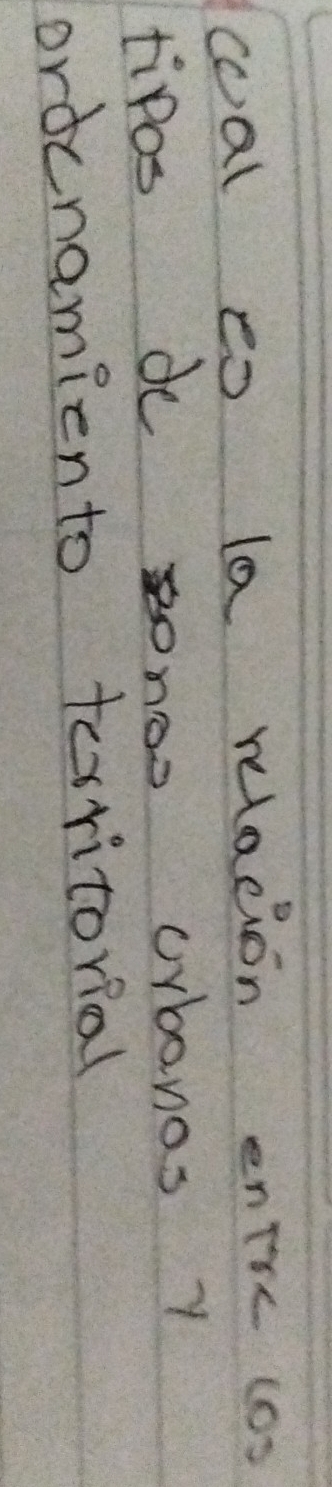 cual es la relación entre los
tipos de zonas urbanas y
ordenamiento territorial